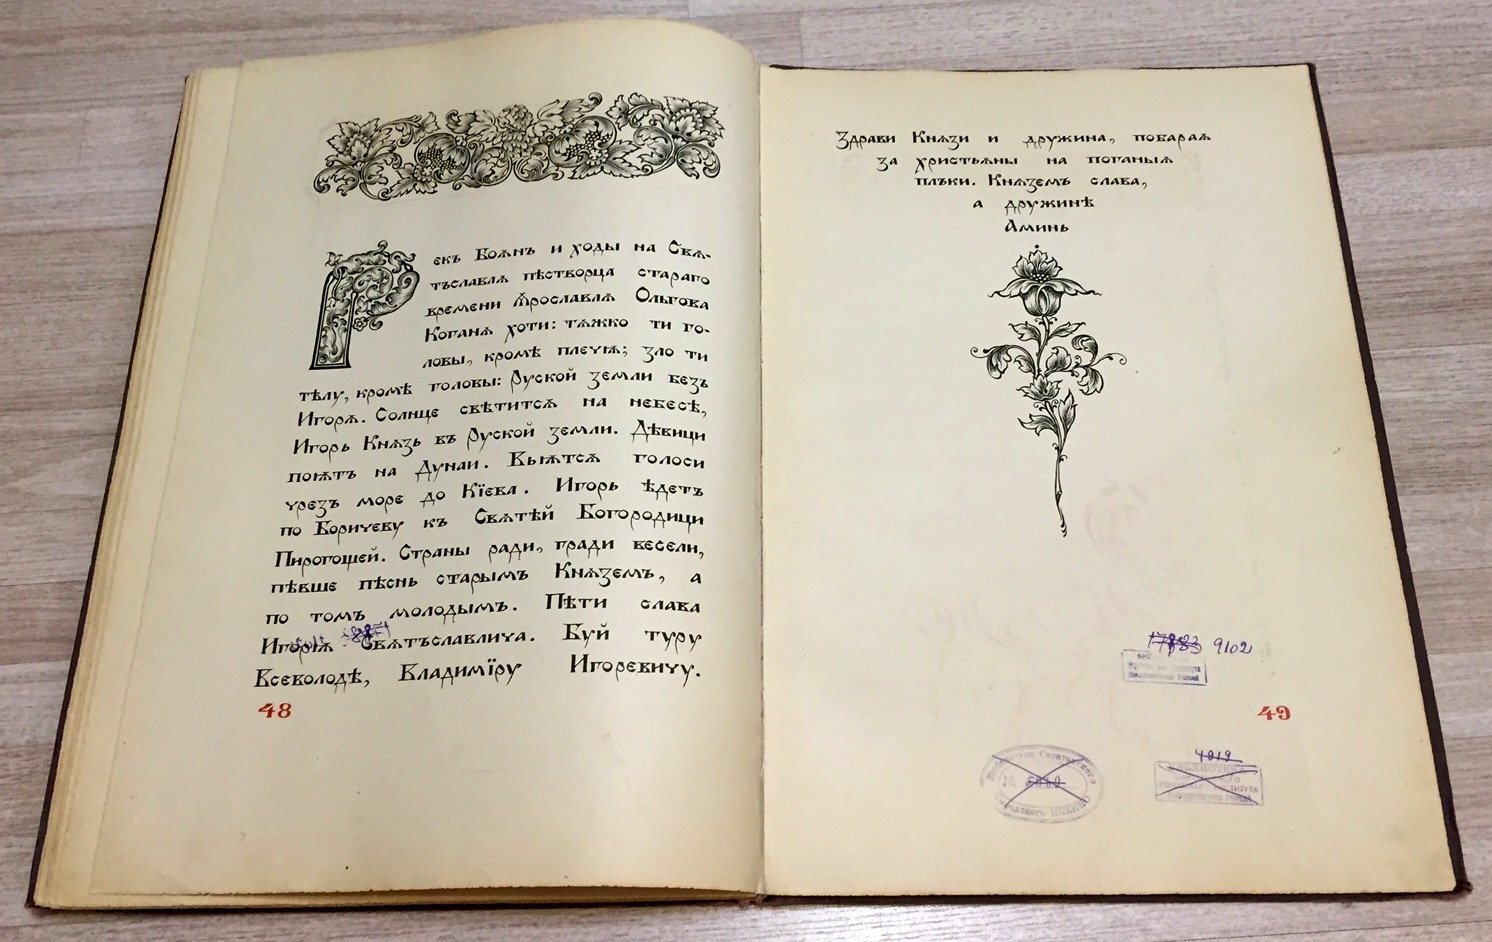 Рекъ Боянъ и ходы на Свѧ-
тъславлѧ пѣстворца стараго
времени Ѧрославлѧ Ольгова
Коганѧ хоти: тѧжко ти го-
ловы, кромѣ плечѭ; зло ти
тѣлу, кромѣ головы: Руской земли безъ
Игорѧ. Солнце свѣтитсѧ на небесѣ,
Игорь Кнѧзь въ Руской земли. Дѣвици
поютъ на Дунаи. Вьютсѧ голоси
чрезъ море до Кїева. Игорь ѣдетъ
по Боричеву къ Свѧтѣй Богородици
Пирогощей. Страны ради, гради весели,
пѣвше пѣснь старымъ Кнѧземъ, а
по томъ молодымъ. Пѣти слава
Игорѧ Свѧтъславлича. Буй туру
Всеволодѣ, Владимїру Игоревичу.
48
Здрави Кнѧзи и дружина, побараѧ
за христьѧны на поганыѧ
плъки. Кнѧземъ слава,
а дружинѣ
Аминь
17883 9102
49
4019
БИБЛИОТЕКА
№